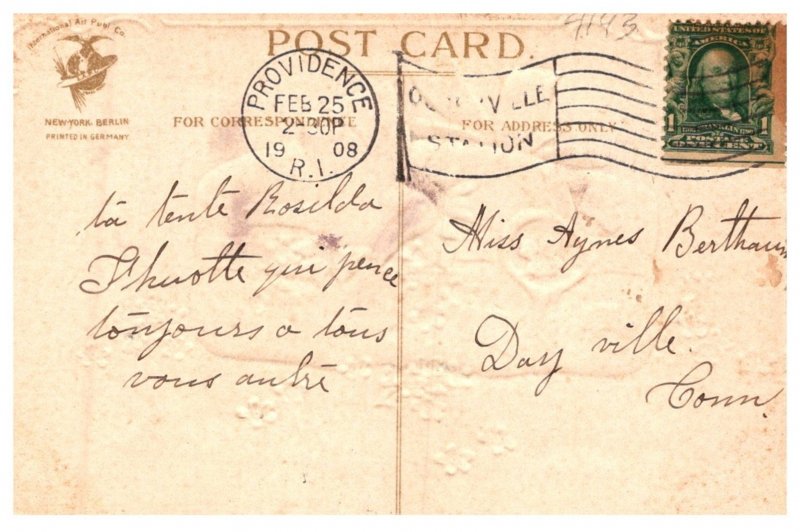 4143
International Art Publ. Co.
NEW-YORK. BERLIN
PRINTED IN GERMANY
POST CARD.
FOR CORRESPONDENCE
FOR ADDRESS ONLY
PROVIDENCE
FEB 25
2-30P
1908
R.I.
STATION
UNITED STATES OF
AMERICA
1 1
POSTAGE
ONE CENT
ta tente Rosilda
qui pence
toujours a tous
vous autre
Miss Agnes
Day ville.
Conn.